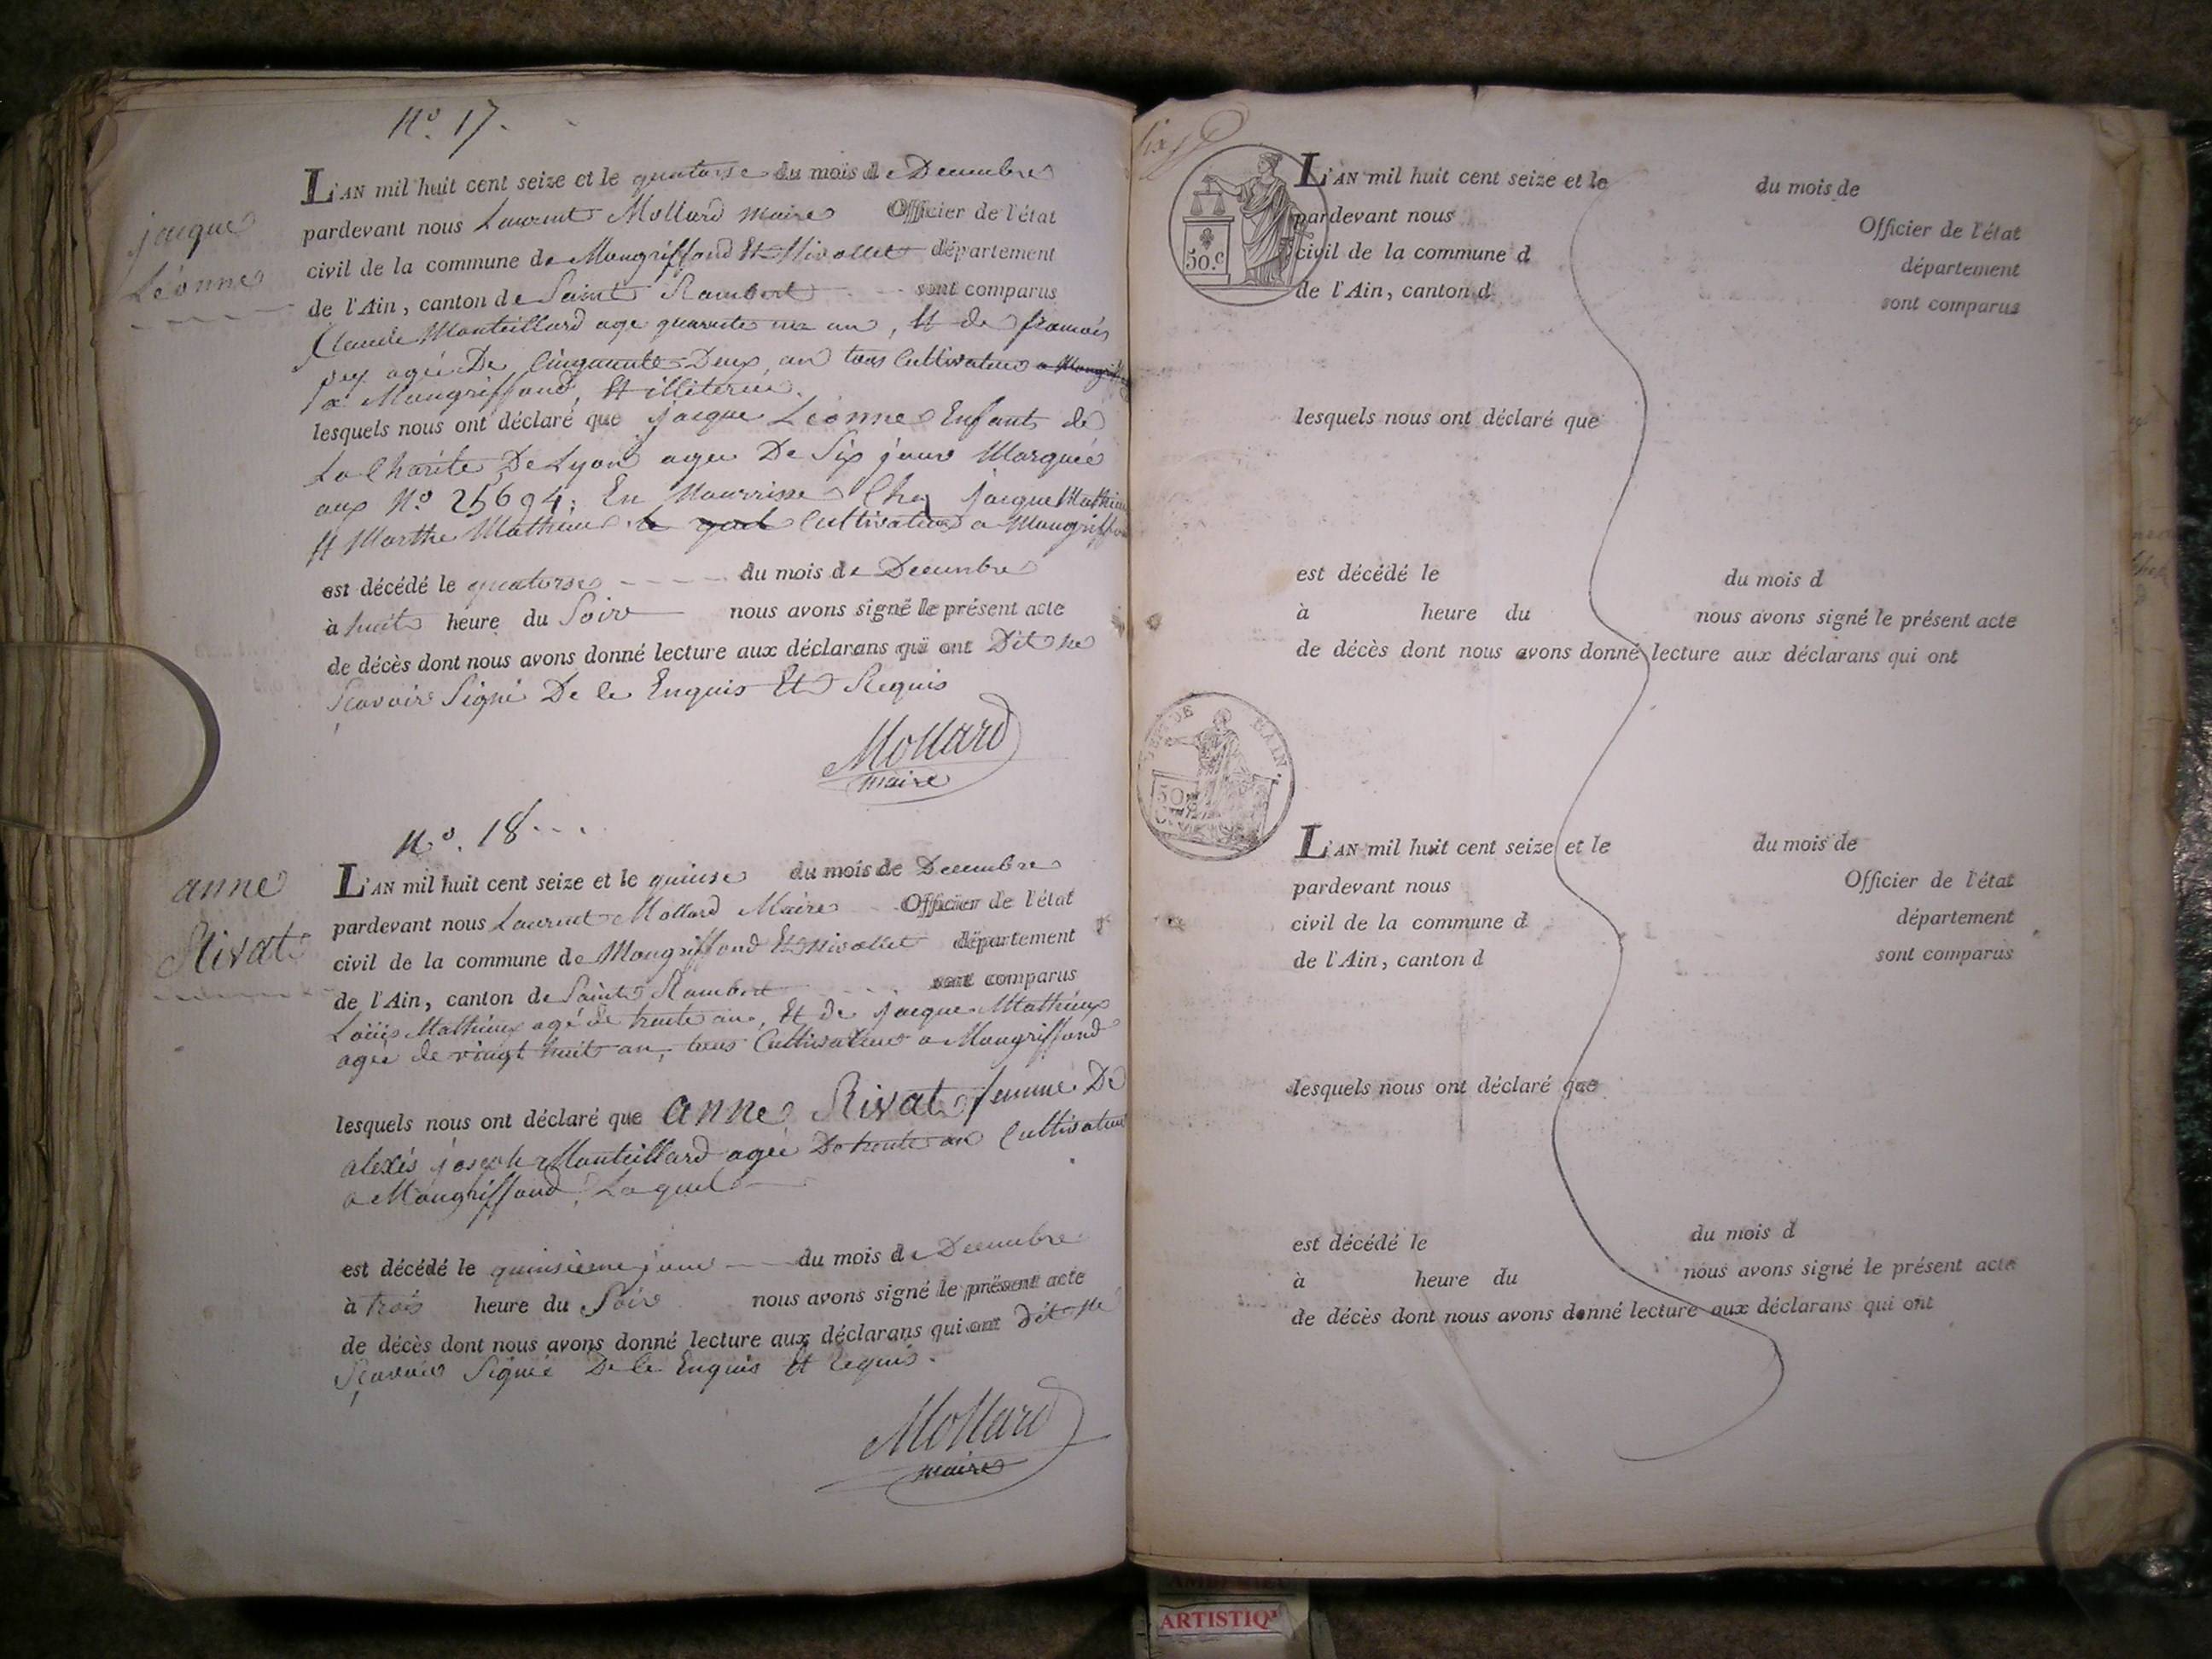 N.º 17.
jacque
Léonne
L'AN mil huit cent seize et le quatorse du mois de Decembre
pardevant nous Laurent Mollard maire Officier de l'état
civil de la commune de Mongriffond Et Nivollet département
de l'Ain, canton de Saint Rambert sont comparus
Claude Monteillard age quarente un an, Et de francois
pey agée De Cinquante Deux an tous Cultivateur a Mongriffond
a Mongriffond, Et illiterue.
lesquels nous ont déclaré que jacque Léonne Enfant de
La Charité De Lyon agee De Six jour Marquée
aux N.º 25694; En Nourrisse Chez jacque Mathieu
Et Marthe Mathieu le quel Cultivateur a Mongriffon
est décédé le quatorse du mois de Decembre
à huit heure du Soir nous avons signé le présent acte
de décès dont nous avons donné lecture aux déclarans qui ont Dit ne
Sçavoir Signé De le Enquis Et Requis
Mollard
maire
N.º 18
anne
Rivat
L'AN mil huit cent seize et le quinse du mois de Decembre
pardevant nous Laurent Mollard Maire Officier de l'état
civil de la commune de Mongriffond Et Nivollet département
de l'Ain, canton de Saint Rambert sont comparus
Loüis Mathieux agé de trente an, Et de jacque Mathieux
agee de vingt huit an, tous Cultivateur a Mongriffond
lesquels nous ont déclaré que anne Rivat femme De
alexis joseph Monteillard agée De trente an Cultivateur
a Mongriffond, Laquel
est décédé le quinsieme jour du mois de Decembre
à trois heure du Soir nous avons signé le présent acte
de décès dont nous avons donné lecture aux déclarans qui ont dit ne
Sçavoir Signée De le Enquis Et requis.
Mollard
maire
six
50.c
L'AN mil huit cent seize et le du mois de
pardevant nous Officier de l'état
civil de la commune d département
de l'Ain, canton d sont comparus
lesquels nous ont déclaré que
est décédé le du mois d
à heure du nous avons signé le présent acte
de décès dont nous avons donné lecture aux déclarans qui ont
50
L'AN mil huit cent seize et le du mois de
pardevant nous Officier de l'état
civil de la commune d département
de l'Ain, canton d sont comparus
lesquels nous ont déclaré que
est décédé le du mois d
à heure du nous avons signé le présent acte
de décès dont nous avons donné lecture aux déclarans qui ont
ARTISTIQ